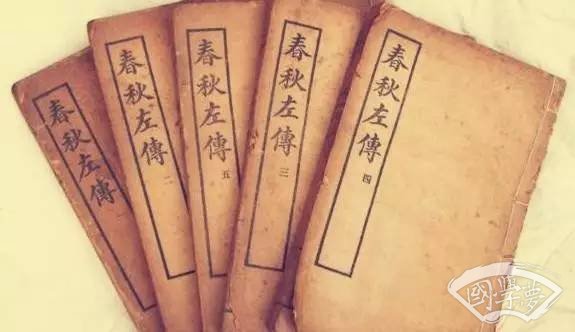 春秋左傳
春秋左傳 二
春秋左傳 五
春秋左傳 三
春秋左傳 四
國學夢